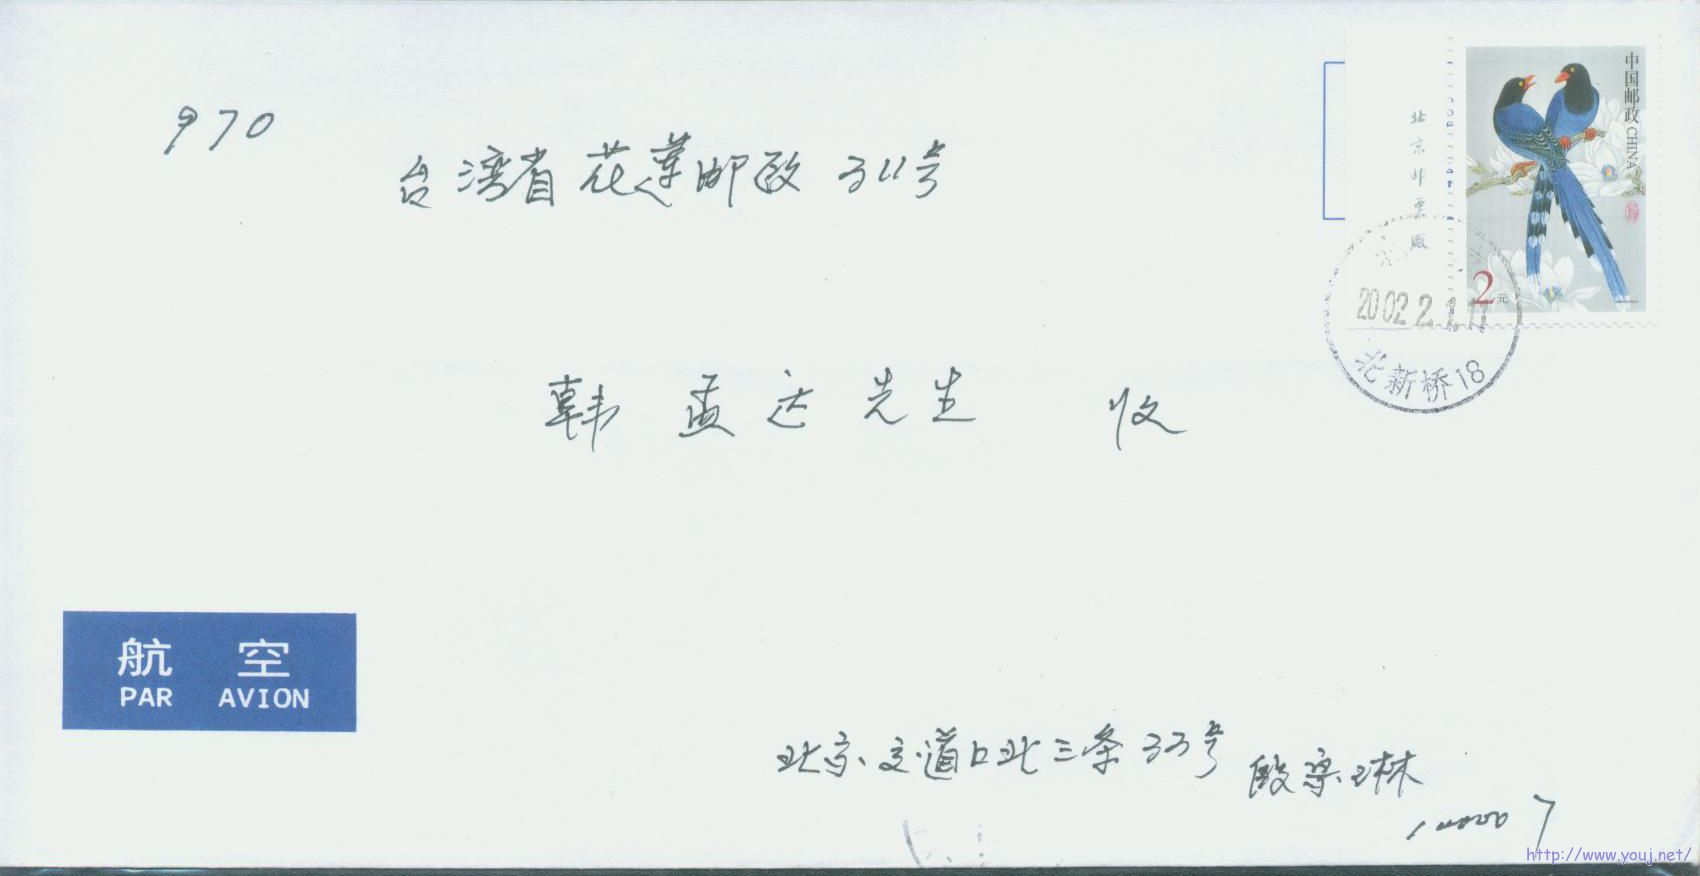 970
台湾省花莲邮政311号
韩孟达先生 收
中国邮政 CHINA
北京邮票厂
2元
北
2002.2.1.11
北新桥18
航空
PAR AVION
北京交道口北三条33号 殷宗琳
100007
http://www.youj.net/